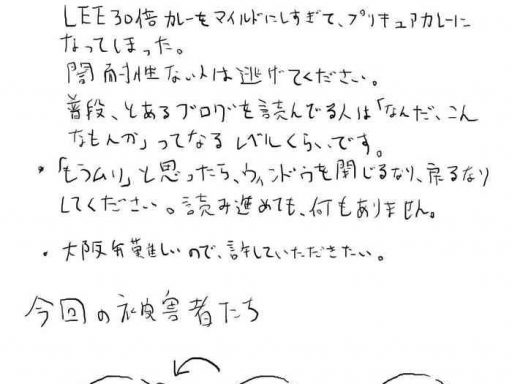 LEE30倍カレーをマイルドにしすぎて、プリキュアカレーに
なってしまった。
闇耐性ない人は逃げてください。
普段、とあるブログを読んでる人は「なんだ、こん
なもんか」ってなるレベルくらいです。
・「もうムリ」と思ったら、ウィンドウを閉じるなり、戻るなり
してください。読み進めても、何もありません。
・大阪弁難しいので、許していただきたい。
今回の被害者たち